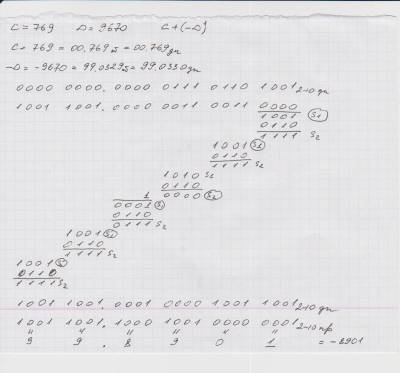 C = 769 D = 9670 C + (-D)
C = 769 = 00,769 = 00.769дк
-D = -9670 = 99.0329 = 99.0330дк
0000 0000. 0000 0111 0110 1001 2-10 дк
1001 1001. 0000 0011 0011 0000
1001 S1
0110
1001 S1 1111 S2
0110
1010 S2 1111 S2
0110
1 0000 S2
0001
0110
1001 1111 S2
0110
1001 1111 S2
0110
1111 S2
1001 1001. 0001 0000 1001 1001 2-10 дк
1001 1001. 1000 1001 0000 0001 2-10 пр
" " " " " "
9 9 . 8 9 0 1 = -8901